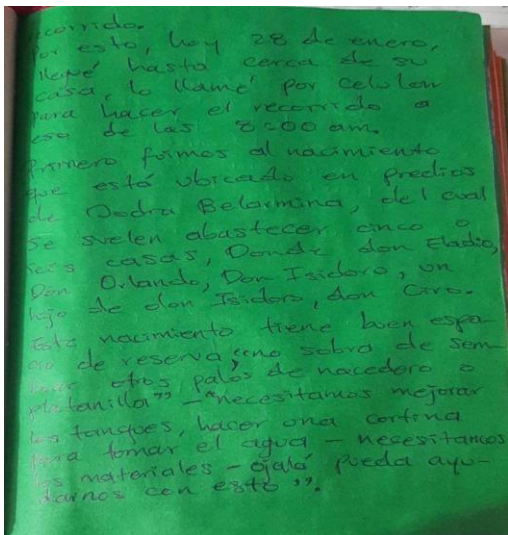 recorrido.
Por esto, hoy 28 de enero,
llegué hasta cerca de su
casa, lo llamé por celular
para hacer el recorrido a
eso de las 8:00 am.
Primero fuimos al nacimiento
que está ubicado en predios
de Doña Belarmina, del cual
se suelen abastecer cinco o
seis casas, Donde don Eladio,
Don Orlando, Don Isidoro, un
hijo de don Isidoro, don Ciro.
Este nacimiento tiene buen espa-
cio de reserva, "no sobra de sem-
brar otros palos de nacedero o
platanilla" - "necesitamos mejorar
los tanques, hacer una cortina
para tomar el agua - necesitamos
los materiales - ojalá pueda ayu-
darnos con esto".